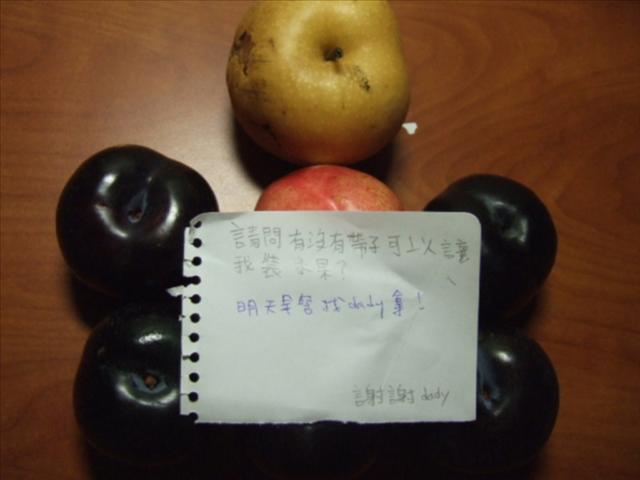 請問有沒有帶子可以讓
我裝水果?
明天早會找dady拿!
謝謝dady